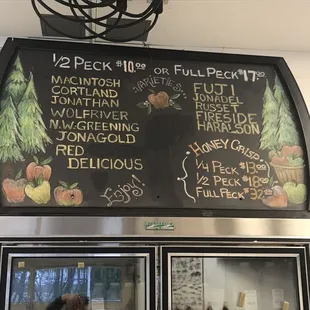 1/2 PECK $10.00 OR FULL PECK $17.50
VARIETIES
MACINTOSH
CORTLAND
JONATHAN
WOLFRIVER
N.W. GREENING
JONAGOLD
RED
DELICIOUS
FUJI
JONADEL
RUSSET
FIRESIDE
HARALSON
Enjoy!
HONEY CRISP:
1/4 PECK $13.00
1/2 PECK $18.00
FULL PECK $32.00